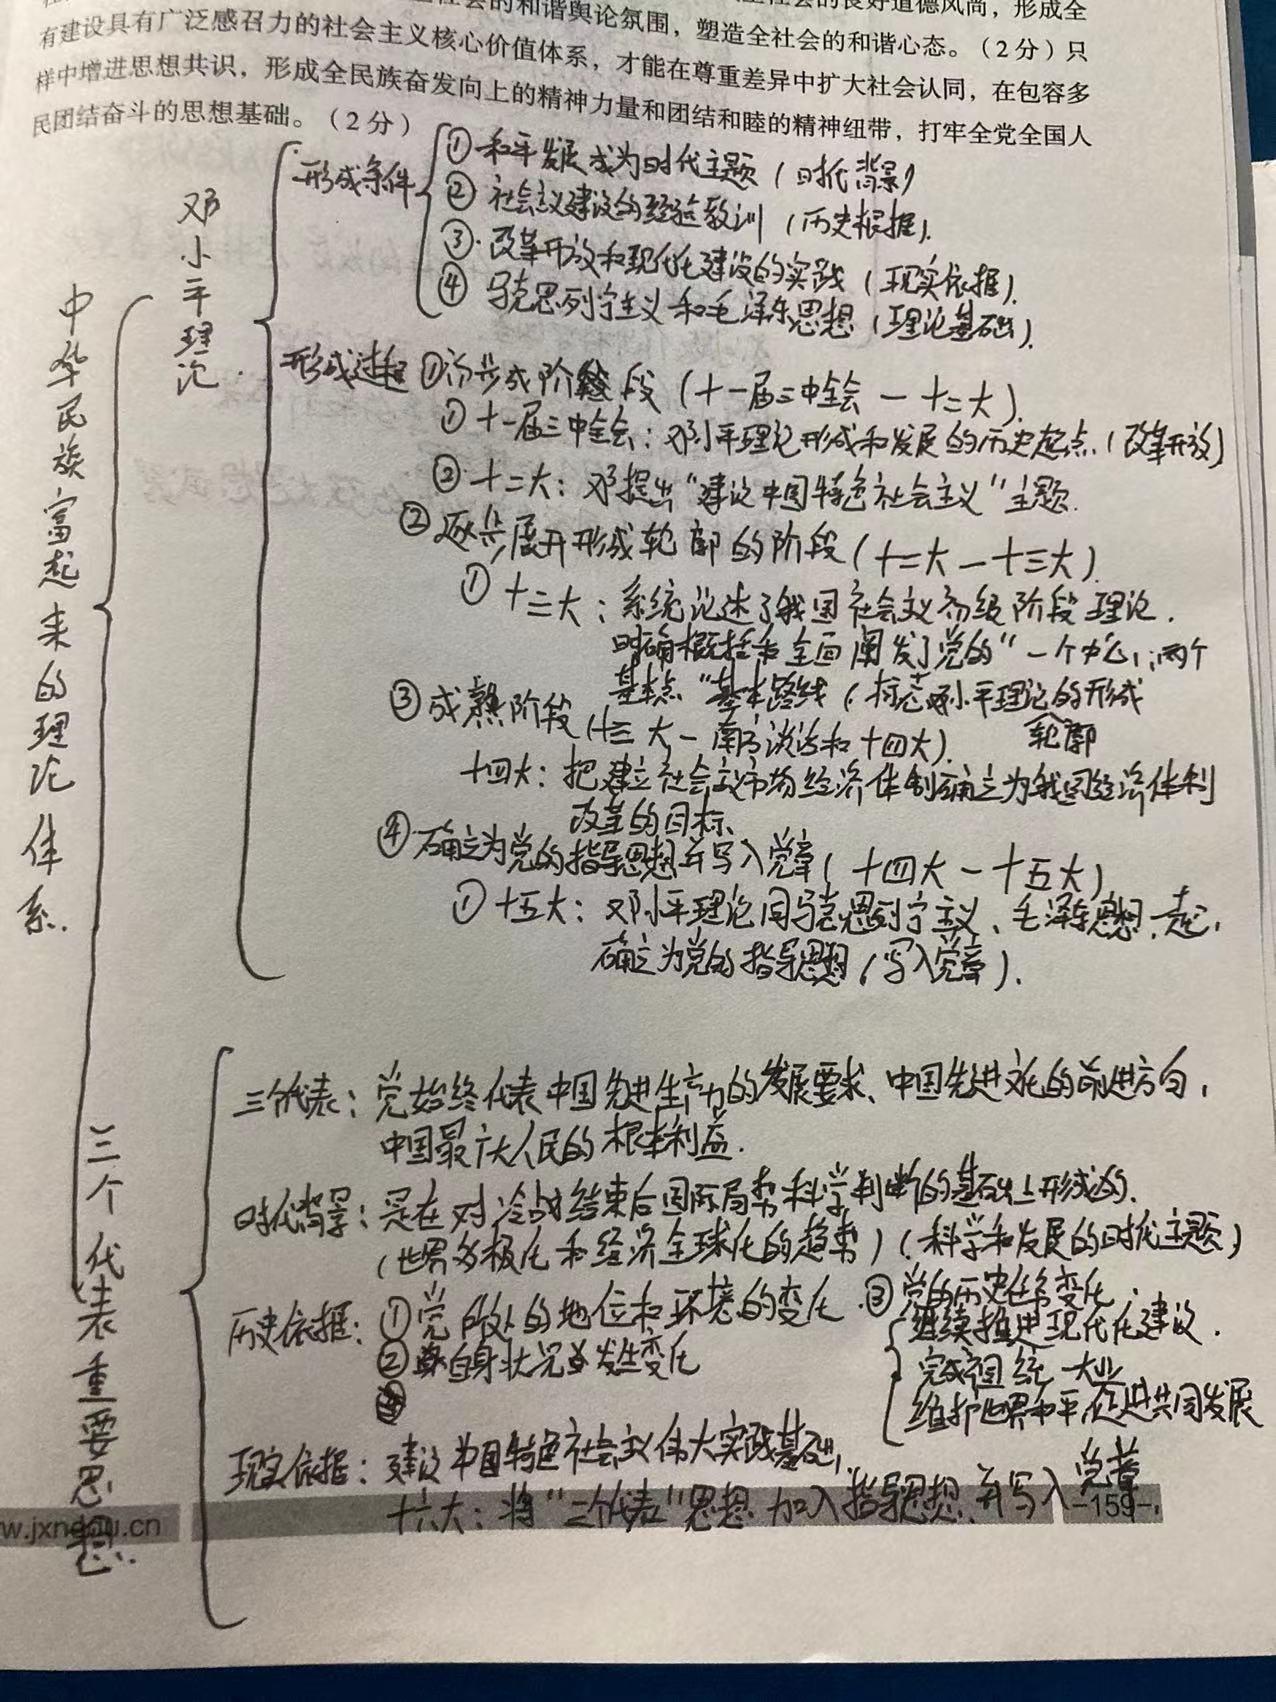 社会的和谐舆论氛围，塑造全社会的和谐心态。（2分）只
社会的良好道德风尚，形成全
有建设具有广泛感召力的社会主义核心价值体系，才能在尊重差异中扩大社会认同，在包容多
样中增进思想共识，形成全民族奋发向上的精神力量和团结和睦的精神纽带，打牢全党全国人
民团结奋斗的思想基础。（2分）
中华民族富起来的理论体系.
邓小平理论.
形成条件
①和平发展成为时代主题（时代背景）
②社会主义建设的经验教训（历史根据）.
③.改革开放和现代化建设的实践（现实依据）.
④马克思列宁主义和毛泽东思想（理论基础）.
形成过程①初步成阶段（十一届三中全会一十二大）.
①十一届三中全会：邓小平理论形成和发展的历史起点.（改革开放）
②.十二大：邓提出“建设中国特色社会主义”主题.
②逐步展开形成轮廓的阶段（十二大一十三大）.
①十三大：系统论述了我国社会主义初级阶段理论.
明确概括和全面阐发了党的“一个中心，两个
基本点”基本路线（标志邓小平理论的形成
轮廓
③成熟阶段（十三大一南方谈话和十四大）.
十四大：把建立社会主义市场经济体制确立为我国经济体制
改革的目标、
④确立为党的指导思想并写入党章（十四大一十五大）
①十五大：邓小平理论同马克思列宁主义、毛泽东思想一起，
确立为党的指导思想（写入党章）.
三个代表重要思想.
三个代表：党始终代表中国先进生产力的发展要求、中国先进文化的前进方向，
中国最广大人民的根本利益.
时代背景：是在对冷战结束后国际局势科学判断的基础上形成的.
（世界多极化和经济全球化的趋势）（科学和发展的时代主题）
历史依据：①党所处的地位和环境的变化.③党的历史任务变化.
②自身状况发生变化
继续推进现代化建设.
完成祖国统一大业
维护世界和平，促进共同发展
现实依据：建设中国特色社会主义伟大实践基础，
十六大：将“三个代表”思想加入指导思想.并写入党章
-159-